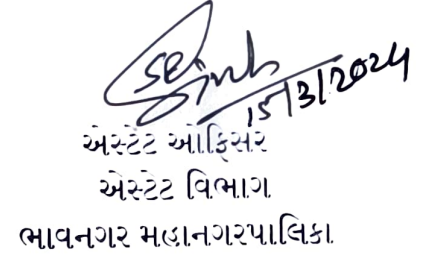 15/3/2024
એસ્ટેટ ઓફિસર
એસ્ટેટ વિભાગ
ભાવનગર મહાનગરપાલિકા